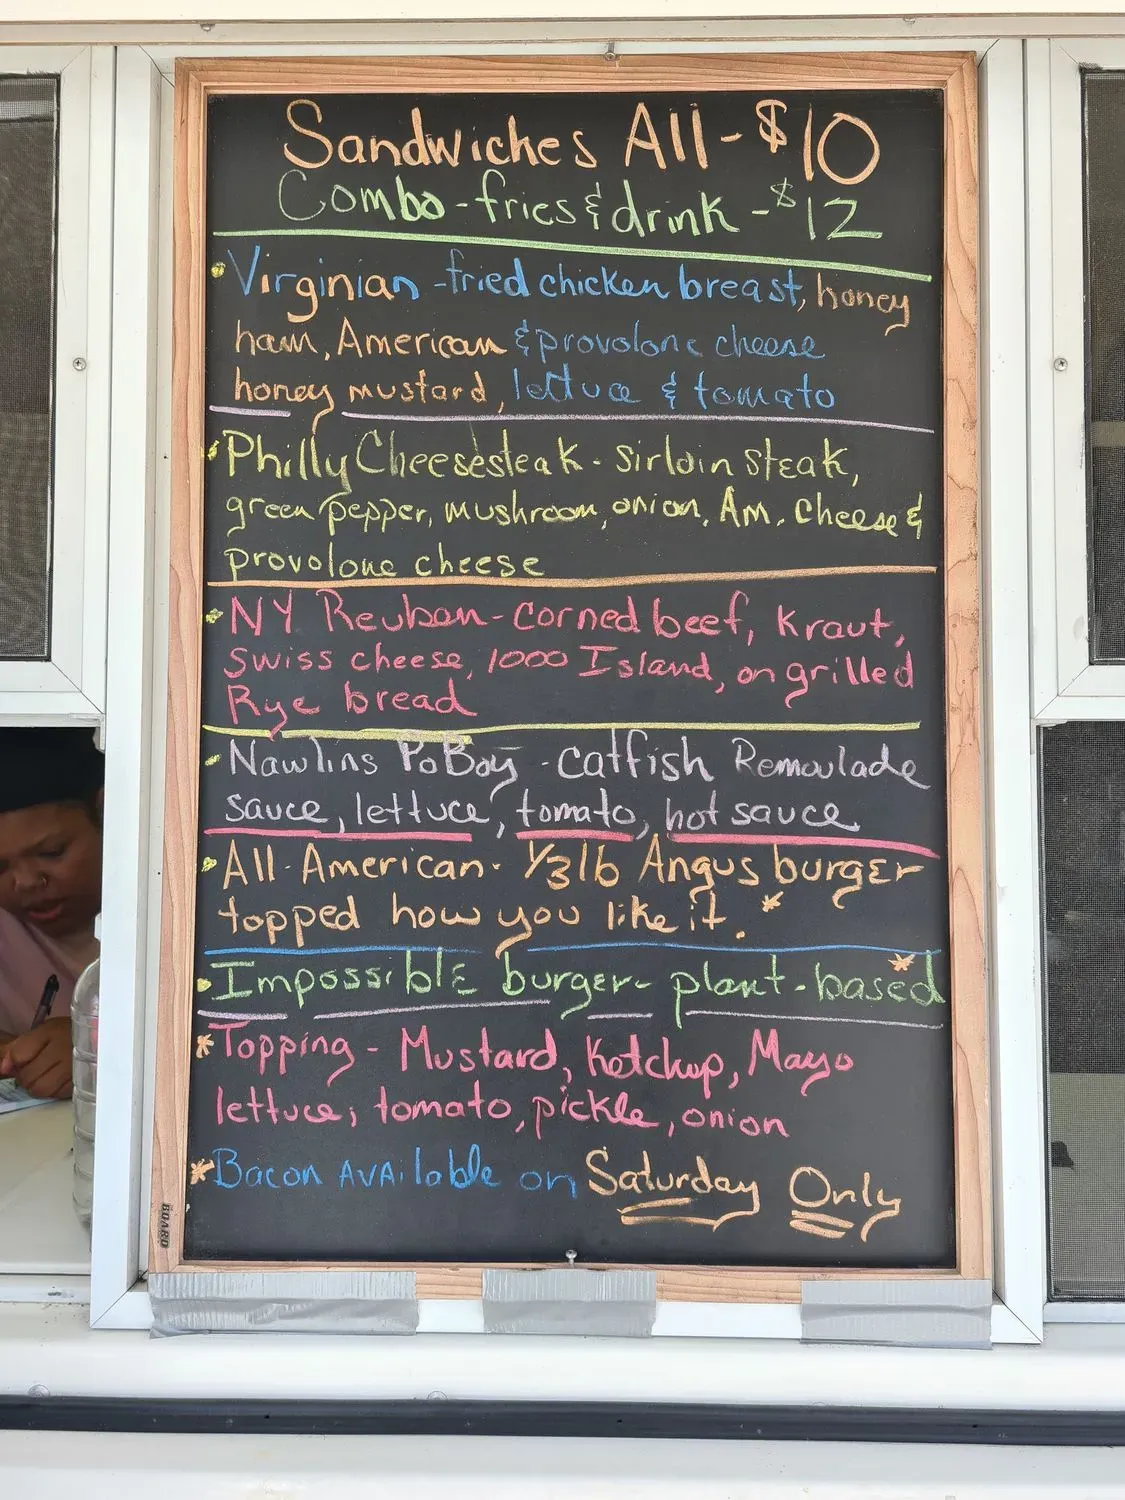 Sandwiches All - $10
Combo - fries & drink - $12
Virginian - fried chicken breast, honey
ham, American & provolone cheese
honey mustard, lettuce & tomato
Philly Cheesesteak - sirloin steak,
green pepper, mushroom, onion, Am. cheese &
provolone cheese
NY Reuben - corned beef, kraut,
swiss cheese, 1000 Island, on grilled
Rye bread
Nawlins PoBoy - catfish Remoulade
sauce, lettuce, tomato, hot sauce
All-American - 1/3 lb Angus burger
topped how you like it. *
Impossible burger - plant-based *
* Topping - Mustard, Ketchup, Mayo
lettuce, tomato, pickle, onion
* Bacon AvAilable on Saturday Only
BOARD